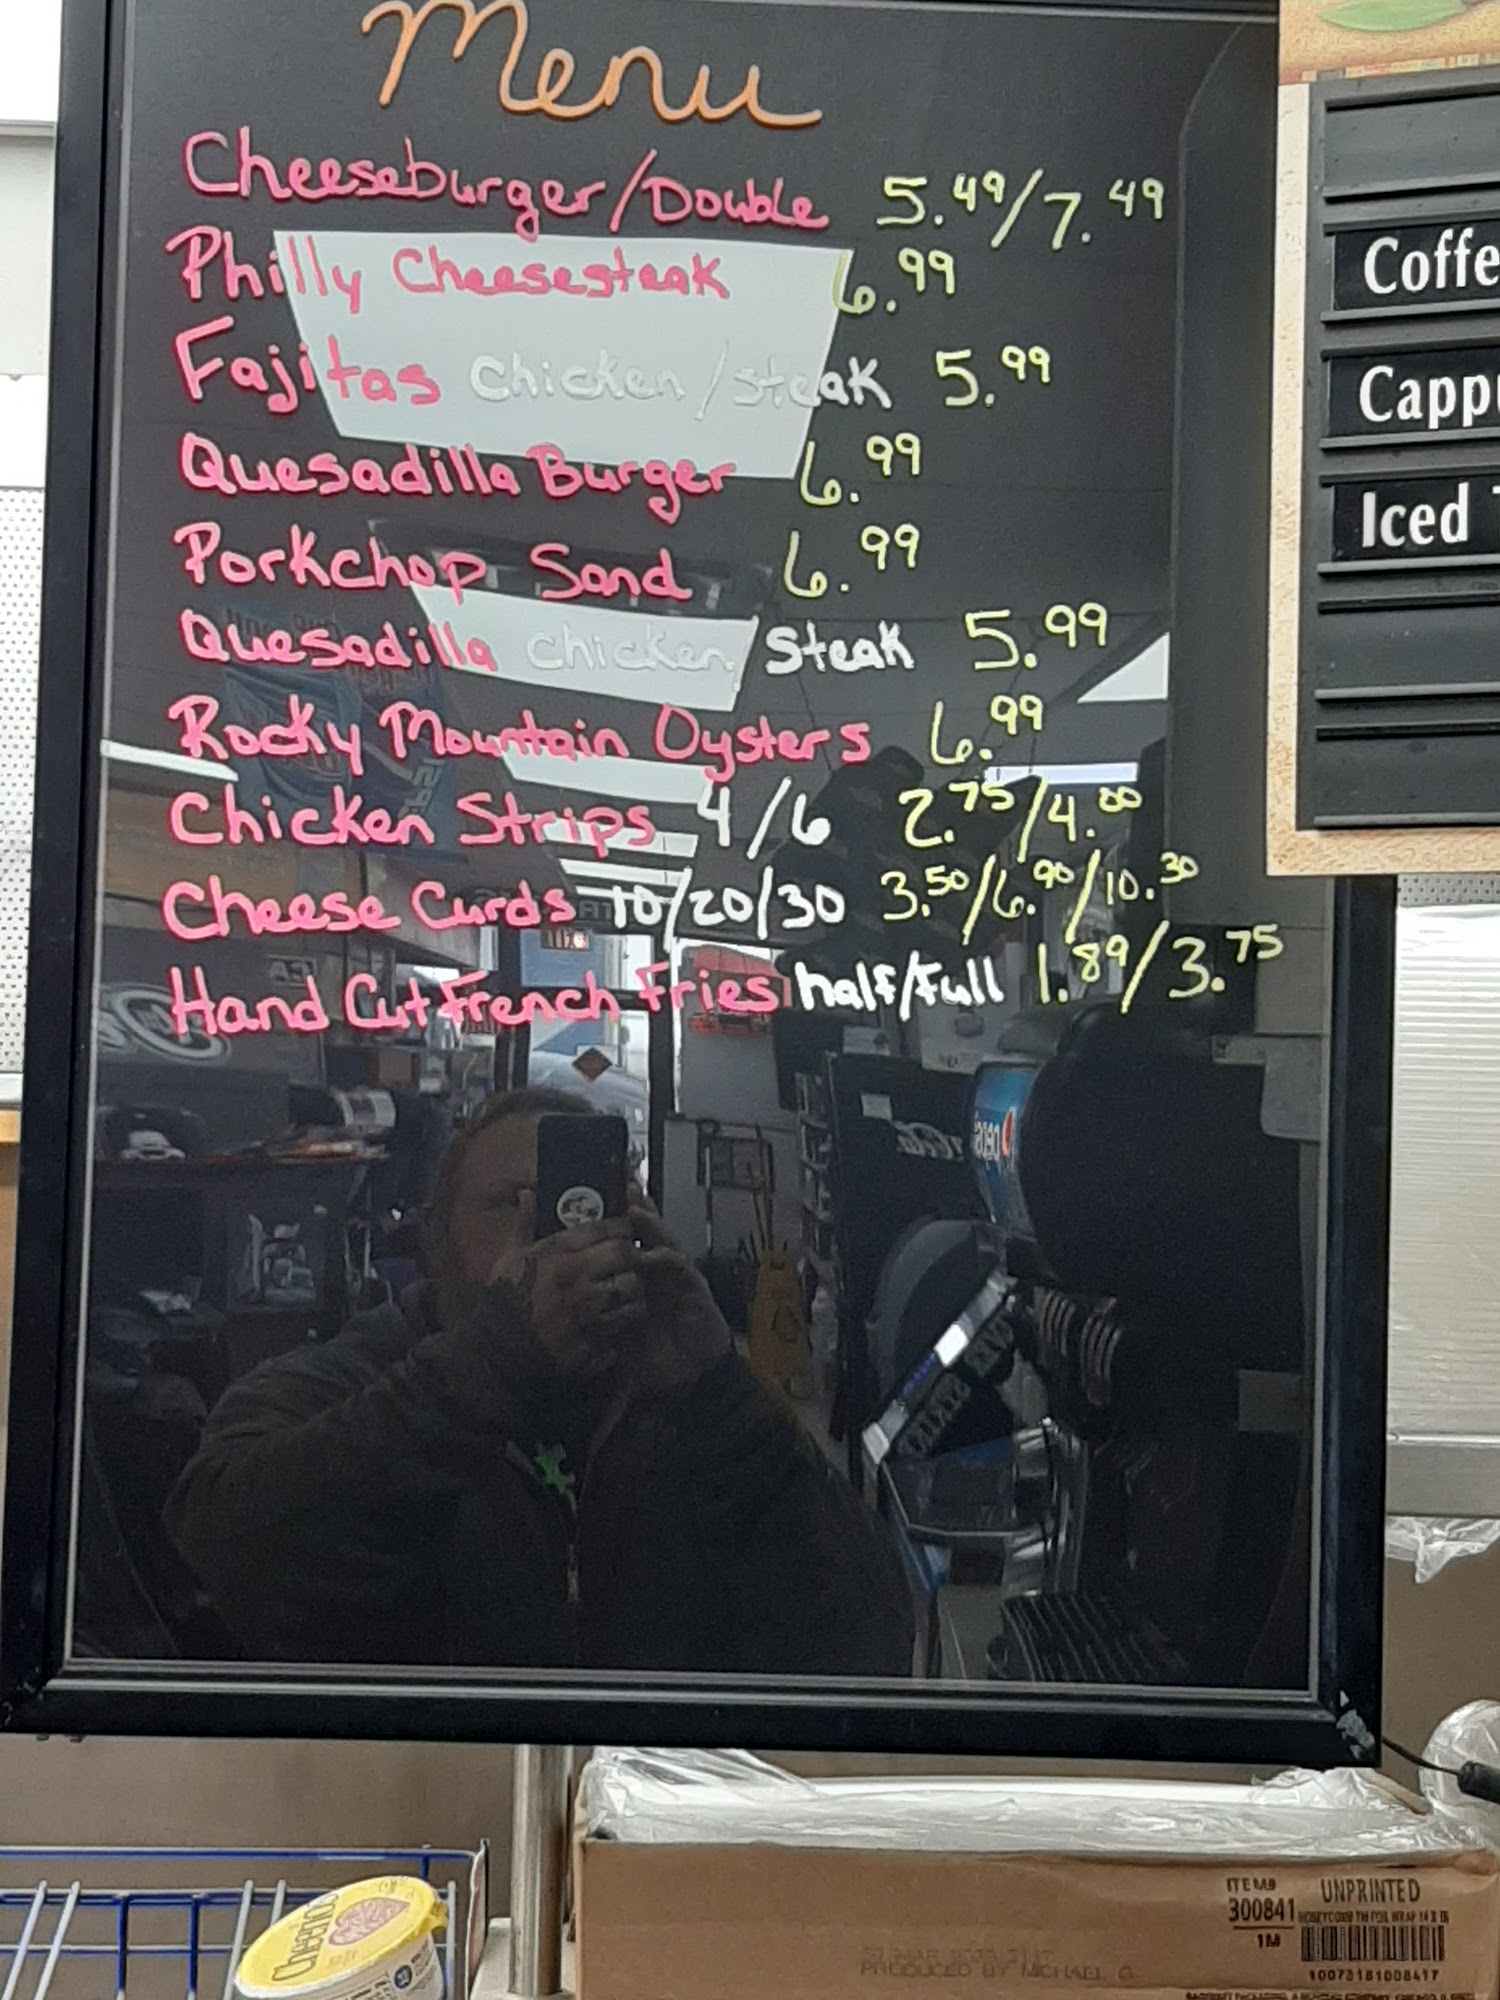 Menu
Cheeseburger/Double 5.49/7.49
Philly Cheesesteak 6.99
Fajitas Chicken/steak 5.99
Quesadilla Burger 6.99
Porkchop Sand 6.99
Quesadilla chicken/steak 5.99
Rocky Mountain Oysters 6.99
Chicken Strips 4/6 2.75/4.00
Cheese Curds 10/20/30 3.50/6.90/10.30
Hand Cut French Fries half/full 1.89/3.75
Coffe
Capp
Iced
pepsi
Cheerios
ITEM# UNPRINTED
300841
1M
10073161008417
PRODUCED BY MICHAEL G